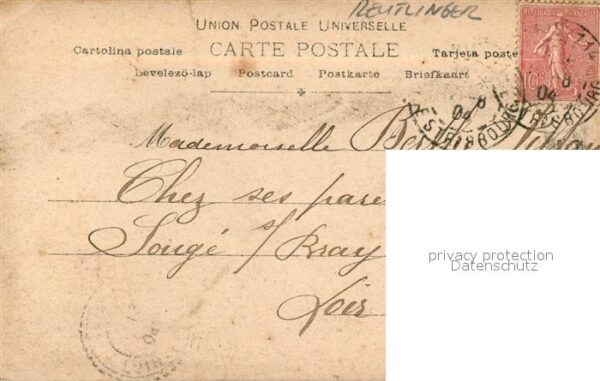 REUTLINGER
UNION POSTALE UNIVERSELLE
Cartolina postale CARTE POSTALE Tarjeta poste
Levelező-lap Postcard Postkarte Briefkaart
10c
04
04
Mademoiselle
Chez ses pare
Sougé s/ Bray
Loir
privacy protection
Datenschutz